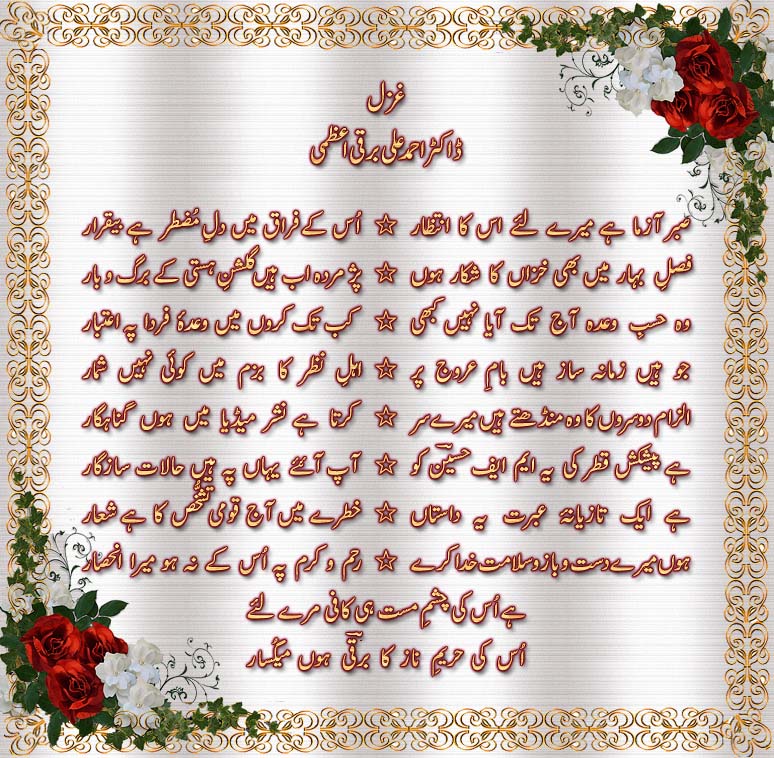 غزل
ڈاکٹر احمد علی برقی اعظمی
صبر آزما ہے میرے لئے اس کا انتظار ☆ اُس کے فراق میں دلِ مُضطر ہے بیقرار
فصلِ بہار میں بھی خزاں کا شکار ہوں ☆ پژمردہ اب ہیں گلشنِ ہستی کے برگ و بار
وہ حسبِ وعدہ آج تک آیا نہیں کبھی ☆ کب تک کروں میں وعدۂ فردا پہ اعتبار
جو ہیں زمانہ ساز ہیں بامِ عروج پر ☆ اہلِ نظر کا بزم میں کوئی نہیں شمار
الزام دوسروں کا وہ منڈھتے ہیں میرے سر ☆ کرتا ہے نشر میڈیا میں ہوں گناہگار
ہے پیشکش قطر کی یہ ایم ایف حسینؔ کو ☆ آپ آئئے یہاں پہ ہیں حالات سازگار
ہے ایک تازیانۂ عبرت یہ داستاں ☆ خطرے میں آج قومی تشخُّص کا ہے شعار
ہوں میرے دست و بازو سلامت خدا کرے ☆ رحم و کرم پہ اُس کے نہ ہو میرا انحصار
ہے اُس کی چشمِ مست ہی کافی مرے لئے
اُس کی حریمِ ناز کا برقیؔ ہوں میگسار